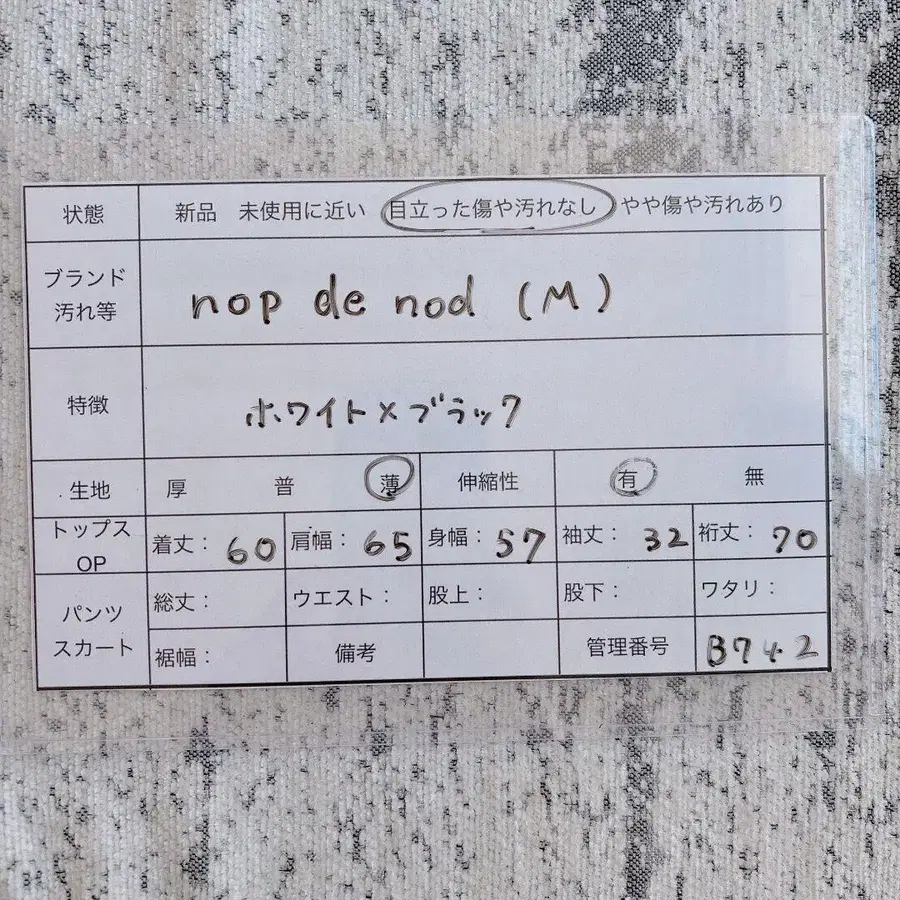 状態 新品 未使用に近い 目立った傷や汚れなし やや傷や汚れあり
ブランド
汚れ等
nop de nod (M)
特徴 ホワイト×ブラック
生地 厚 普 薄 伸縮性 有 無
トップス
OP
着丈： 60 肩幅： 65 身幅： 57 袖丈： 32 裄丈： 70
パンツ
スカート
総丈： ウエスト： 股上： 股下： ワタリ：
裾幅： 備考 管理番号 B742